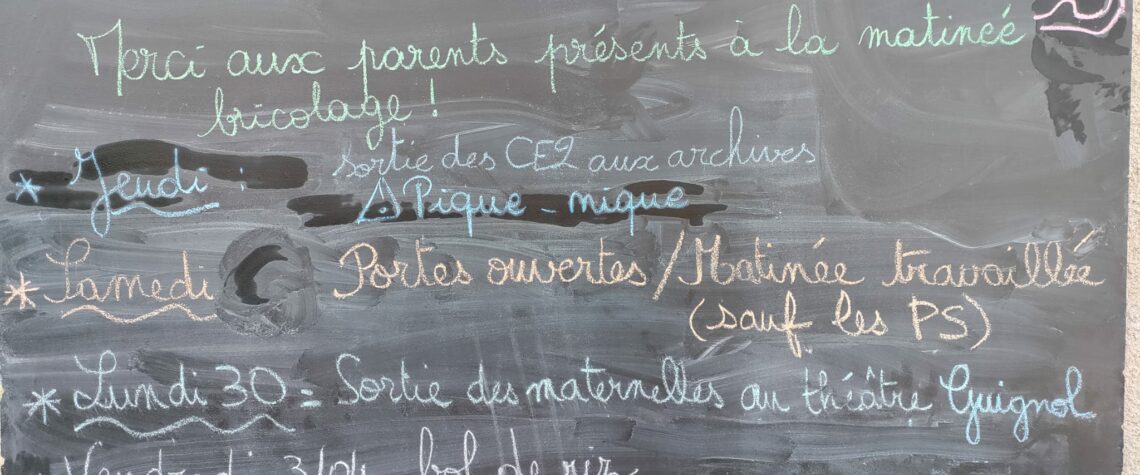 Merci aux parents présents à la matinée
bricolage !
* Jeudi : sortie des CE2 aux archives
⚠ Pique-nique
* Samedi Portes ouvertes / Matinée travaillée
(sauf les PS)
* Lundi 30 = Sortie des maternelles au théâtre Guignol
Vendredi 3/04 bol de riz